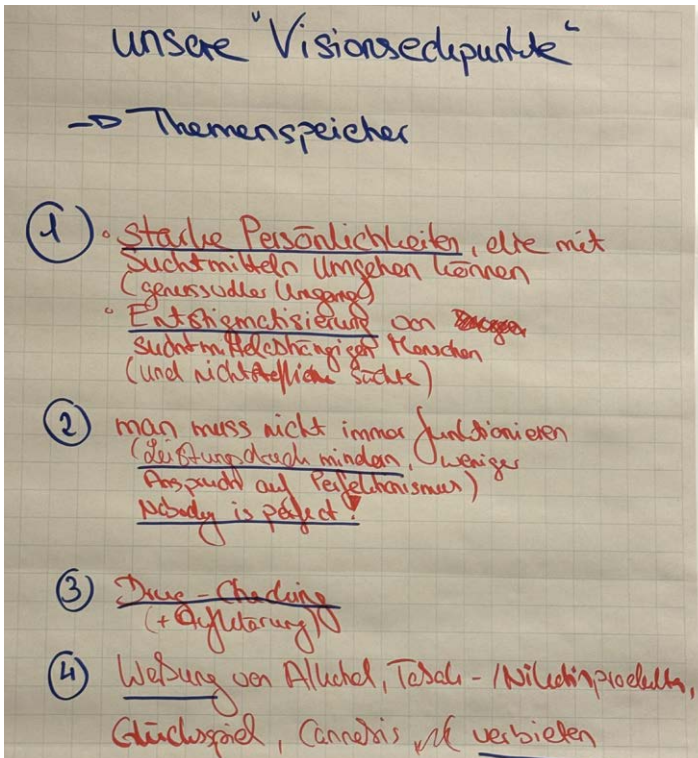 unsere "Visionseckpunkte"
-> Themenspeicher
1 • starke Persönlichkeiten, die mit
Suchtmitteln umgehen können
(genussvoller Umgang)
• Entstigmatisierung von
suchtmittelabhängigen Menschen
(und nichtstoffliche Süchte)
2 man muss nicht immer funktionieren
(Leistungsdruck mindern, weniger
Anspruch auf Perfektionismus)
Nobody is perfect!
3 Drug-Checking
(+ Aufklärung)
4 Werbung von Alkohol, Tabak-/Nikotinprodukten,
Glücksspiel, Cannabis, verbieten